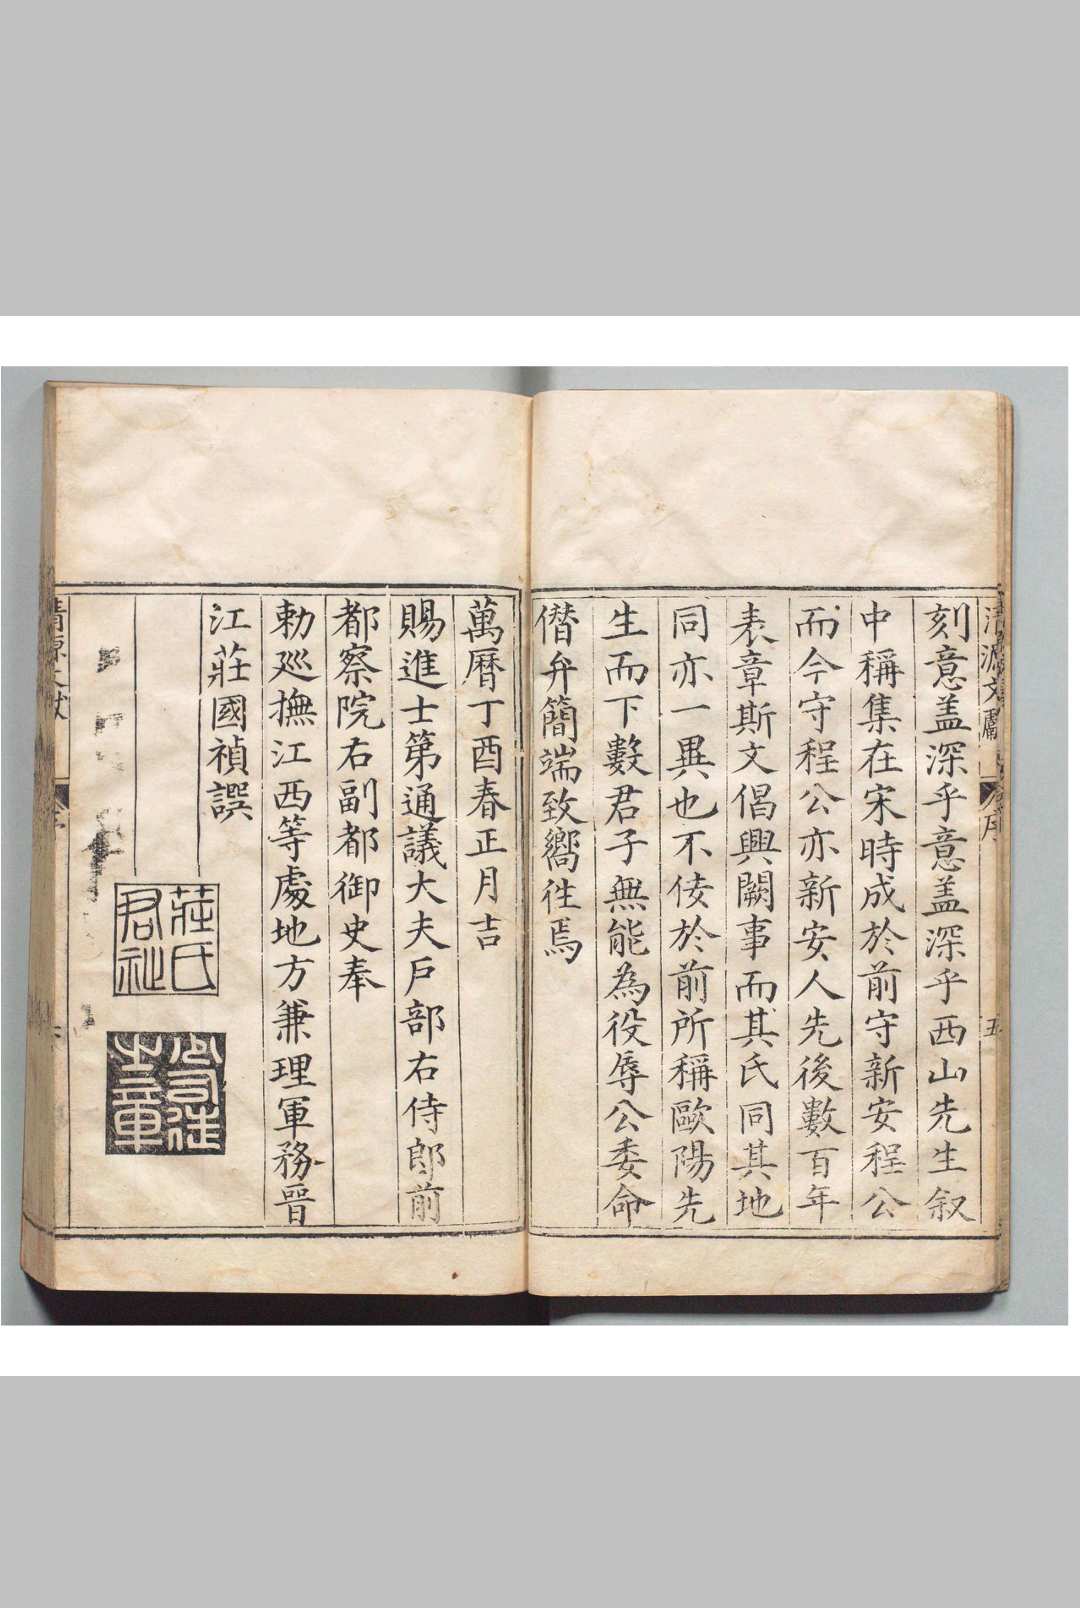 刻意盖深乎意盖深乎西山先生叙
中稱集在宋時成於前守新安程公
而今守程公亦新安人先後數百年
表章斯文倡興闕事而其氏同其地
同亦一異也不佞於前所稱歐陽先
生而下數君子無能為役辱公委命
僭弁簡端致嚮徃焉
萬曆丁酉春正月吉
賜進士第通議大夫戶部右侍郎前
都察院右副都御史奉
勅廵撫江西等處地方兼理軍務晉
江莊國禎譔
莊氏
君祉